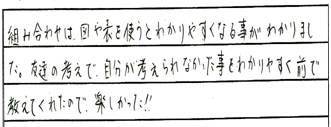 組み合わせは、図や表を使うとわかりやすくなる事がわかりまし
た。友達の考えで、自分が考えられなかった事をわかりやすく前で
教えてくれたので、楽しかった!!